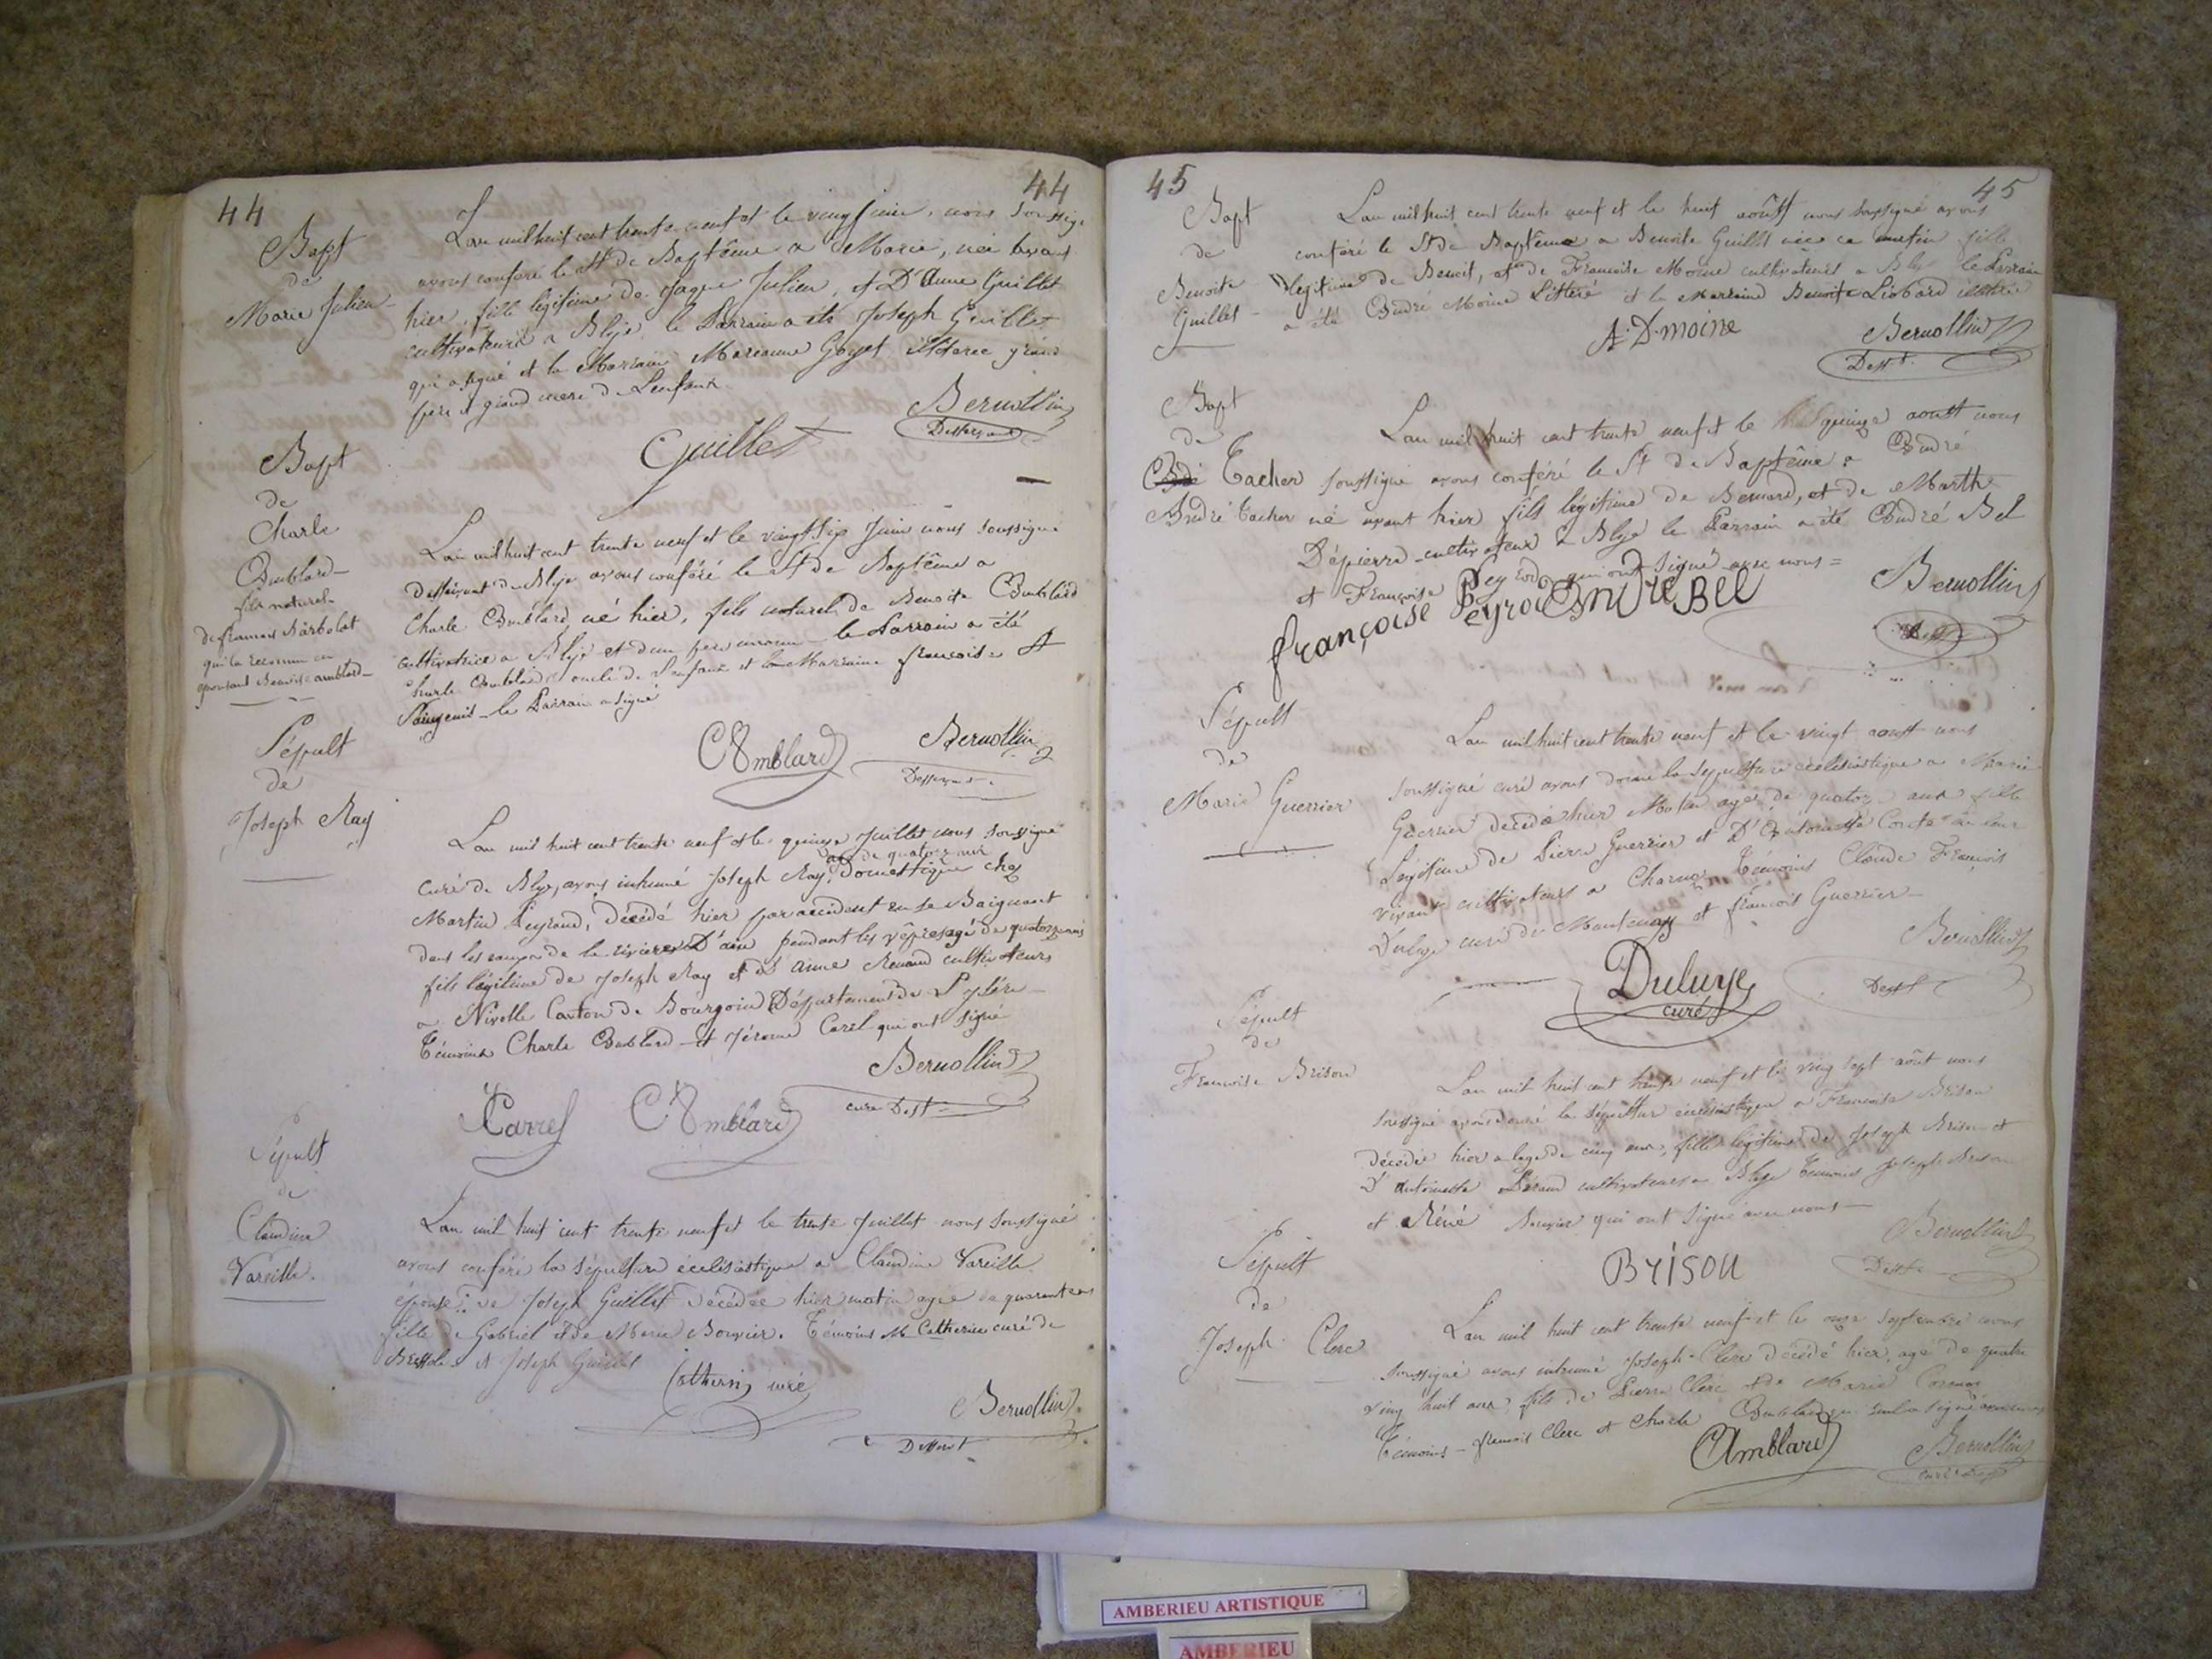 44
44
Bapt
de
Marie Julien
L'an mil huit cent trente neuf et le vingt juin, nous soussigé
avons conféré le St de Baptême a Marie, née avant
hier, fille légitime de Jaque Julien, et D'Anne Guillet
cultivateurs a Blye le Parrain a été Joseph Guillet
qui a signé et la Marraine Marianne Goyet illiteree grand
père et grand mere de L'enfant
Guillet
Bernollin
Desservant
Bapt
de
Charle
Amblard
fils naturel
de francois Barbolat
qui l'a reconnu en
epousant Benoite amblard
L'an mil huit cent trente neuf et le vingt six Juin nous soussigné
desservant de Blye avons conféré le St de Baptême a
Charle Amblard né hier, fils naturel de Benoite Amblard
cultivatrice a Blye et d'un père inconnu le Parrain a été
Charle Amblard oncle de l'enfant et la Marraine francoise
le Parrain a signé
C Amblard
Bernollin
Desservant
Sépult
de
Joseph Ray
L'an mil huit cent trente neuf et le quinze Juillet nous soussigné
curé de Blye, avons inhumé Joseph Ray agé de quatorze ans domestique chez
Martin Peyraud, décédé hier par accident en se Baignant
dans les eaux de la rivière D'ain pendant les vêpres agé de quatorze ans
fils légitime de Joseph Ray et D'anne Renaud cultivateurs
a Nivolle Canton de Bourgoin Département de L'isère
Témoins Charle Amblard et Jérome Carel qui ont signé
Bernollin
curé Dest
Carrel
C Amblard
Sépult
de
Claudine
Vareille
L'an mil huit cent trente neuf et le trente Juillet nous soussigné
avons conféré la sépulture écclésiastique a Claudine Vareille
épouse de Joseph Guillet décédée hier matin agée de quarante ans
fille de Gabriel et de Marie Bouvier. Témoins M Catherin curé de
et Joseph Guillet
Catherin curé
Bernollin
Desservt
45
45
Bapt
de
Benoite
Guillet
L'an mil huit cent trente neuf et le huit aoûst nous soussigné avons
conféré le St de Baptême a Benoite Guillet née ce matin fille
légitime de Benoit, et de Francoise Moine cultivateurs a Blye le Parrain
a été André Moine Litteré et la Marraine Benoite Liobard illitrée
A. D. moine
Bernollin
Desst.
Bapt
de
André Tacher
L'an mil huit cent trente neuf et le quinze aoust nous
Tacher soussigné avons conféré le St de Baptême a André
André Tacher né avant hier fils légitime de Bernard, et de Marthe
Dépierre cultivateur a Blye le Parrain a été André Bel
et Françoise Peyrod qui ont signé avec nous =
françoise Peyrod André Bel
Bernollin
Sépult
de
Marie Guerrier
L'an mil huit cent trente neuf et le vingt aoust nous
soussigné curé avons donné la sepulture écclésiastique a Marie
Guerrier décédé hier Matin agée de quatorze ans fille
Légitime de Pierre Guerrier et D'Antoinette Conte en leur
vivant cultivateurs a Charnoz Témoins Claude François
Duluye curé de et francois Guerrier
Bernollin
Dest
Duluye
curé
Sépult
de
Francoise Brison
L'an mil huit cent trente neuf et le ving sept août nous
soussigné avons donné la sépulture écclésiastique a Francoise Brison
décédée hier a l'age de cinq ans, fille légitime de Joseph Brison et
D'antoinette Péraud cultivateurs a Blye Témoins Joseph Brison
et Réné Bouvier qui ont signé avec nous
Bernollin
Desst
Brison
Sépult
de
Joseph Clerc
L'an mil huit cent trente neuf et le onze Septembre nous
soussigné avons inhumé Joseph Clerc décédé hier, agé de quatre
ving huit ans, fils de Pierre Clerc et de Marie
Témoins francois Clerc et Charle Amblard qui seul a signé avec nous
C Amblard
Bernollin
AMBERIEU ARTISTIQUE
AMBERIEU